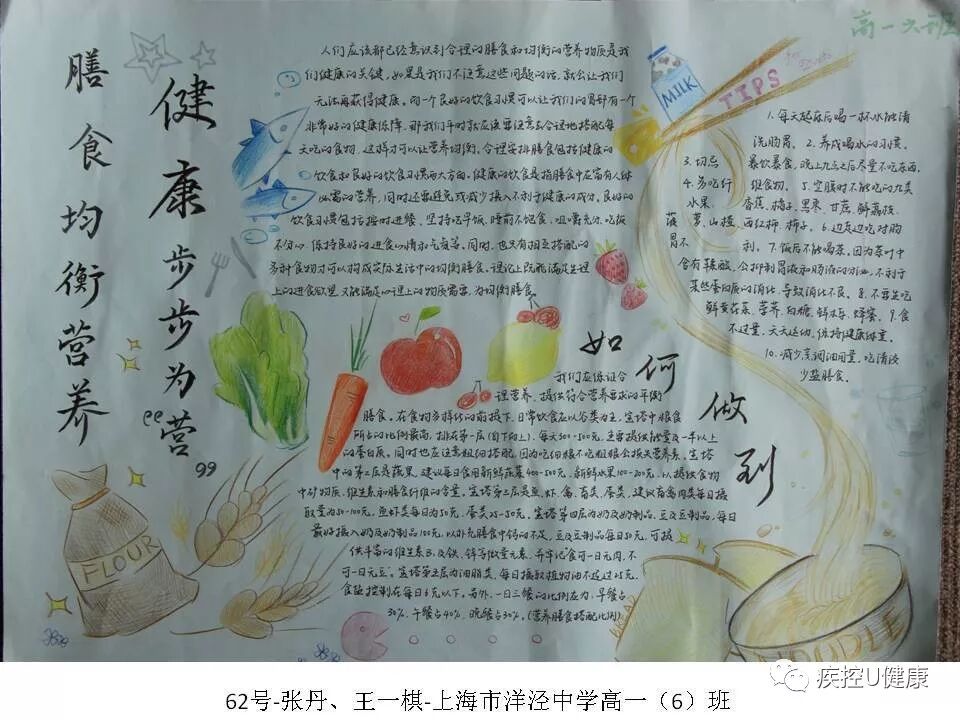 高一六班
膳食均衡营养
健康步步为“营”
人们应该都已经意识到合理的膳食和均衡的营养物质是我
们健康的关键，如果是我们不注意这些问题的话，就会让我们
无法再获得健康。而一个良好的饮食习惯可以让我们的胃部有一个
非常好的健康保障。那我们平时就应该要注意去合理地搭配每
天吃的食物，这样才可以让营养均衡。合理安排膳食包括健康的
饮食和良好的饮食习惯两大方面。健康的饮食是指膳食中应富有人体
必需的营养，同时还要避免或减少摄入不利于健康的成分。良好的
饮食习惯包括按时进餐、坚持吃早饭、睡前不饱食、咀嚼充分、吃饭
不分心、保持良好的进食心情和气氛等。同时，也只有相互搭配的
多种食物才可以构成实际生活中的均衡膳食。理论上既能满足生理
上的进食欲望，又能满足心理上的物质需要，为均衡膳食。
MILK
TIPS
1. 每天起床后喝一杯水能清
洗肠胃。2. 养成喝水的习惯。
3. 切忌暴饮暴食，晚上九点之后尽量不吃东西。
4. 多吃纤维食物。5. 空腹时不能吃的几类
水果 香蕉、橘子、黑枣、甘蔗、鲜荔枝、
菠萝、山楂、西红柿、柿子。6. 边走边吃对肠
胃不利。7. 饭后不能喝茶。因为茶叶中
含有鞣酸，会抑制胃液和肠液的分泌，不利于
某些蛋白质的消化，导致消化不良。8. 不要生吃
鲜黄花菜、荸荠、白糖、鲜木耳、蜂蜜。9. 食
不过量，天天运动，保持健康体重。
10. 减少烹调油用量，吃清淡
少盐膳食。
如何做到
我们应保证合
理营养，提供符合营养要求的平衡
膳食。在食物多样化的前提下，日常饮食应以谷类为主，宝塔中粮食
所占的比例最高，排在第一层(自下向上)，每天300-500克，主要提供能量及一半以上
的蛋白质。同时也应注意粗细搭配，因为吃细粮不吃粗粮会损失营养素。宝塔
中的第二层是蔬果，建议每日食用新鲜蔬菜400-500克，新鲜水果100-200克，以提供食物
中矿物质、维生素和膳食纤维的含量。宝塔第三层是鱼、虾、禽、畜类、蛋类，建议畜禽肉类每日摄
取量为50-100克，鱼虾类每日为50克，蛋类25-50克。宝塔第四层为奶及奶制品、豆及豆制品，每日
最好摄入奶及奶制品100克，以补充膳食中钙的不足，豆及豆制品每日50克，可提
供丰富的维生素B及铁、锌等微量元素，并牢记食可一日无肉，不
可一日无豆。宝塔第五层为油脂类，每日摄取植物油不超过25克，
食盐控制在每日6克以下。另外，一日三餐的比例应为，早餐占
30%，午餐占40%，晚餐占30%。(营养膳食搭配比例)
FLOUR
NOODLE
疾控U健康
62号-张丹、王一棋-上海市洋泾中学高一（6）班